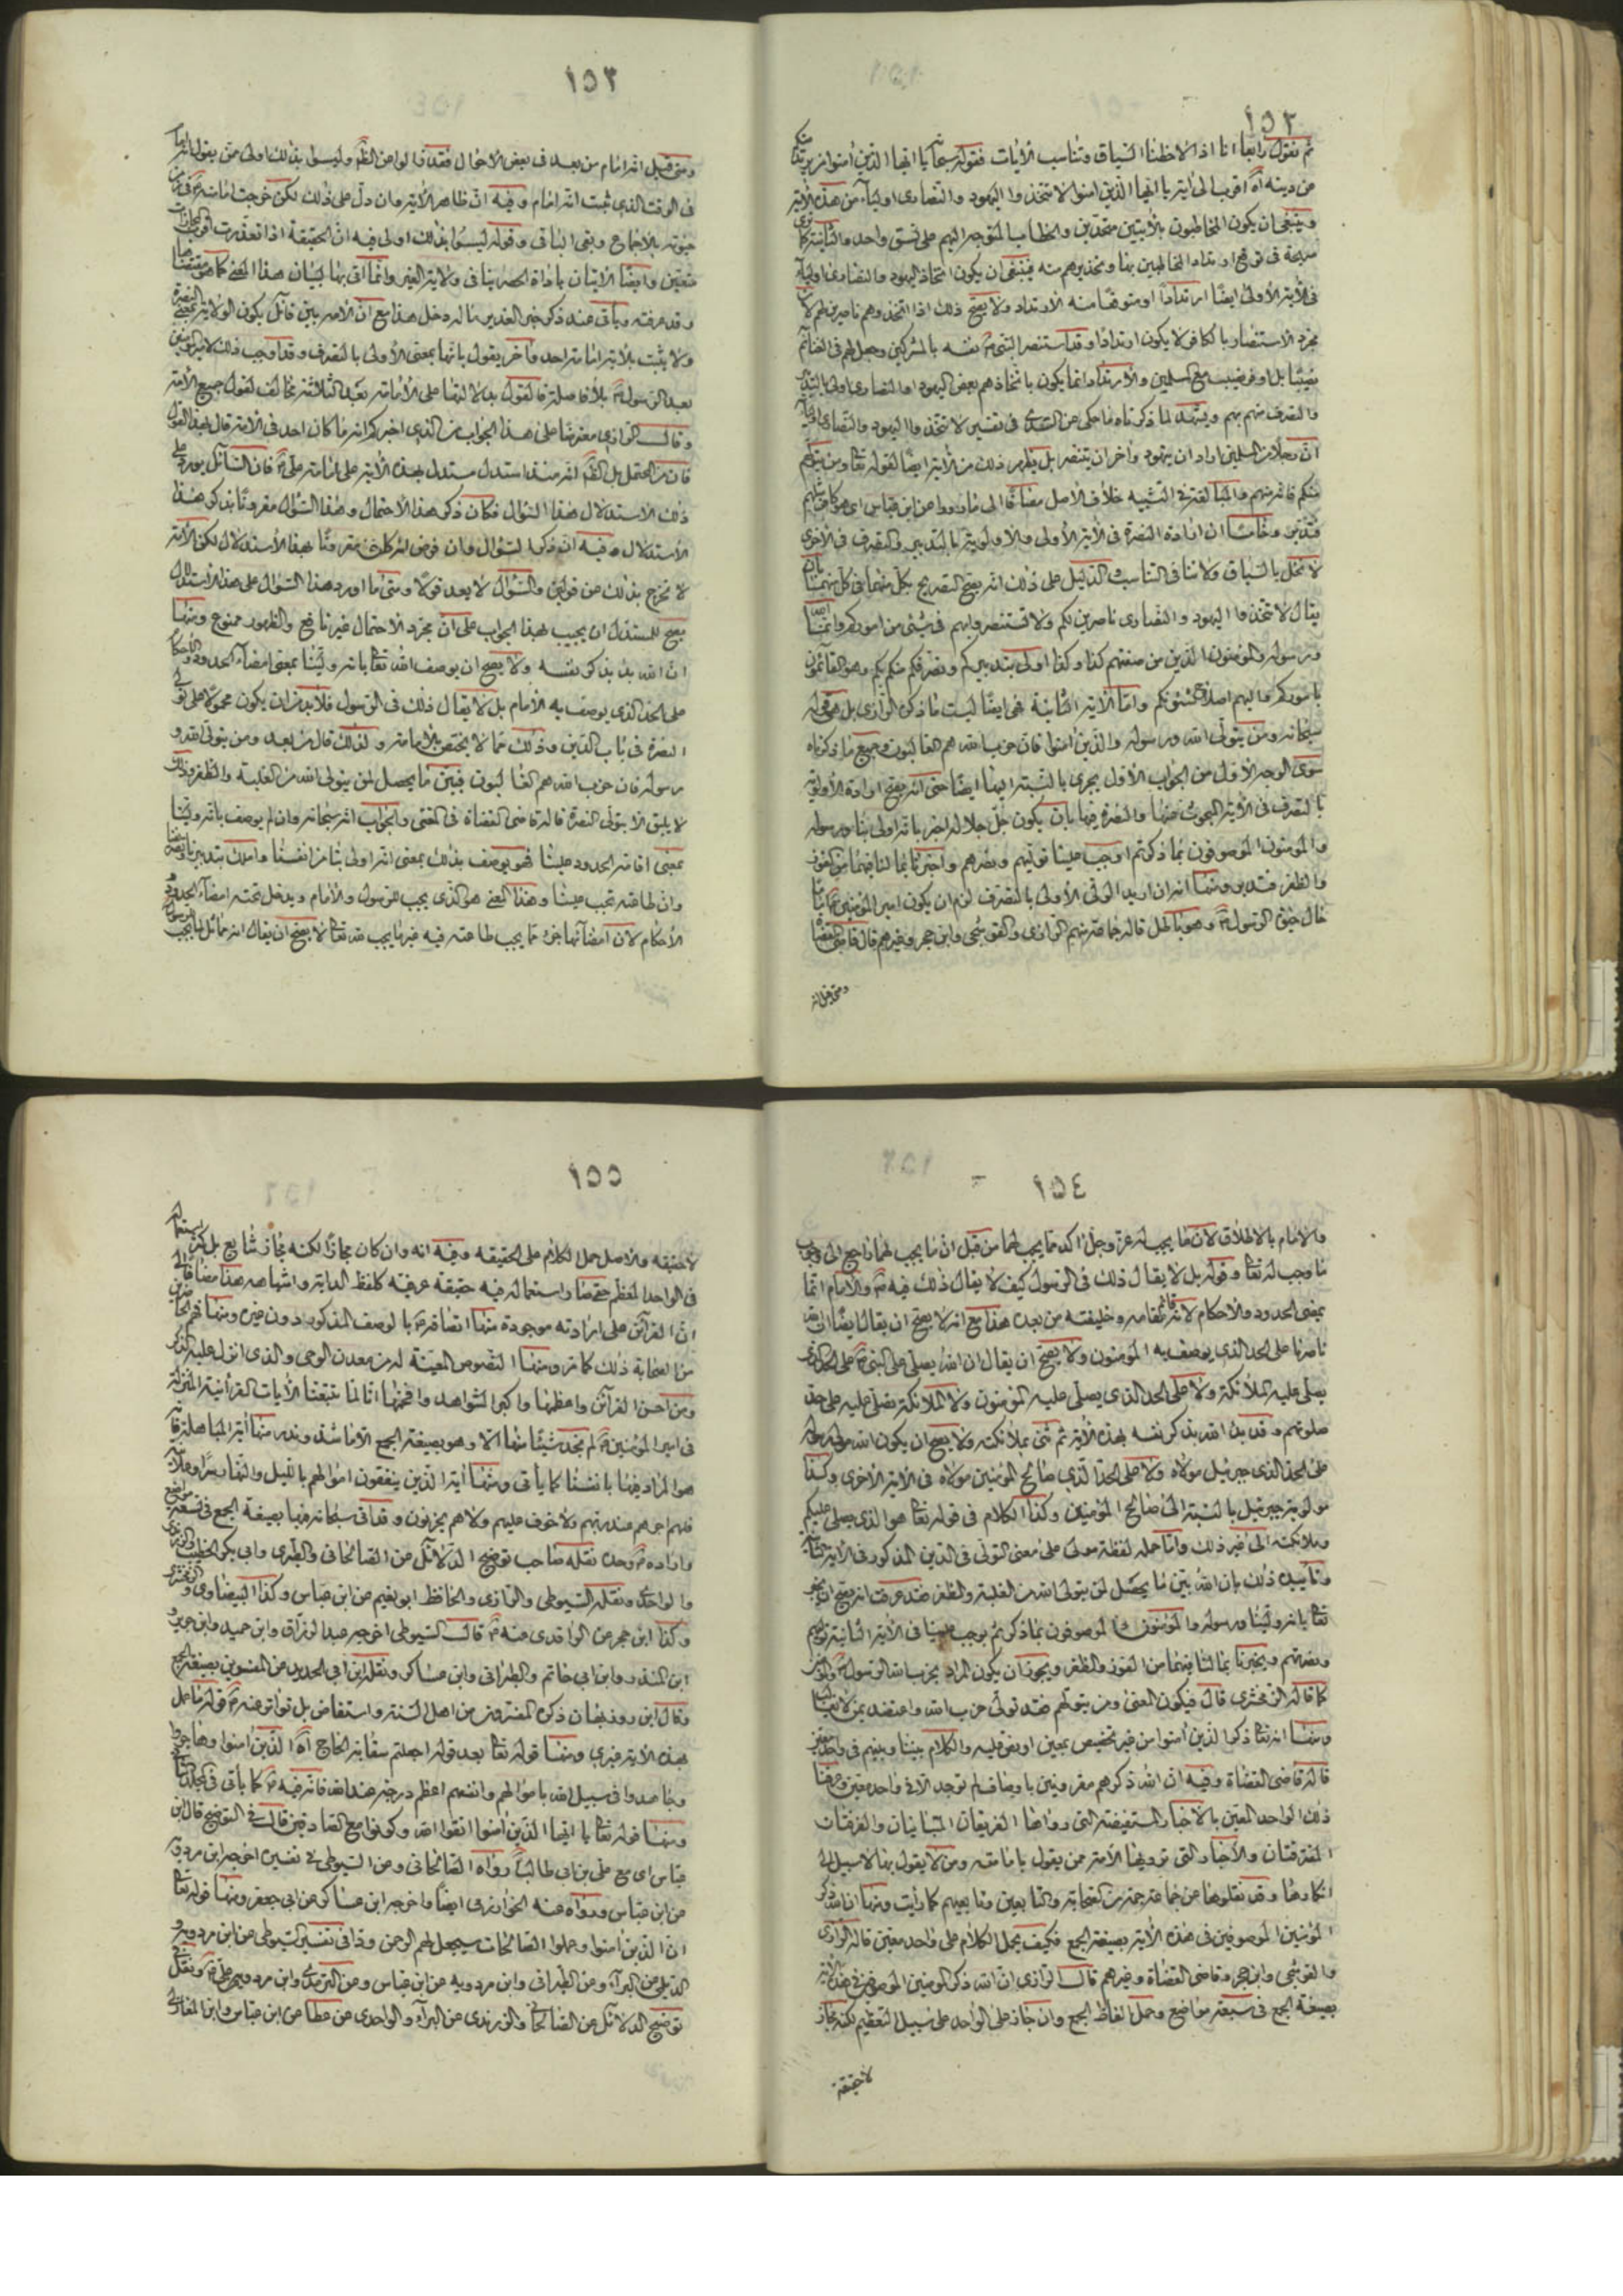 ١٥٢
ثم نقول رابعا انا اذا لاحظنا السياق وتناسب الايات فقوله سبحانه يا ايها الذين امنوا من يرتد منكم
عن دينه اه اقرب الى اية يا ايها الذين امنوا لا تتخذوا اليهود والنصارى اولياء من هذه الاية
وينبغي ان يكون المخاطبون بالايتين متحدين والخطاب المتوجه اليهم على نسق واحد والثانية كما ترى
صريحة في توقع ارتداد المخاطبين بها وتحذيرهم منه فينبغي ان يكون اتخاذ اليهود والنصارى اولياء
في الاية الاولى ايضا ارتدادا او متوقعا منه الارتداد ولا يصح ذلك اذا اتخذوهم ناصرين لهم لان
مجرد الاستنصار بالكافر لا يكون ارتدادا وقد استنصر النبي نفسه بالمشركين وجعل لهم في الغنائم
نصيبا بل اوفر نصيب مع المسلمين والارتداد انما يكون باتخاذهم بعض اليهود او النصارى اولى بالتدبير
والتصرف منهم بهم ويشهد لما ذكرناه ما حكي عن السدي في تفسير لا تتخذوا اليهود والنصارى اولياء
ان رجلا من المسلمين اراد ان يتهود واخر ان يتنصر بل يظهر ذلك من الاية ايضا لقوله تعالى ومن يتولهم
منكم فانه منهم والمبالغة في التشبيه خلاف الاصل مضافا الى ما رووا عن ابن عباس اي هو كافر مثلهم
فتدبر وخامسا ان ارادة النصرة في الاية الاولى والاولوية بالتدبير والتصرف في الاخرى
لا تخل بالسياق ولا تنافي التناسب والدليل على ذلك انه يصح التصريح بكل منهما في كل منهما بان
يقال لا تتخذوا اليهود والنصارى ناصرين لكم ولا تستنصروا بهم في شيء من اموركم وانما الله
ورسوله والمؤمنون الذين من صفتهم كذا وكذا اولى بتدبيركم وتصرفكم منكم بكم وهم القائمون
باموركم واليهم اصلاح شئونكم واما الاية الثانية فهي ايضا ليست ما ذكره الرازي بل هي قوله
سبحانه ومن يتولى الله ورسوله والذين امنوا فان حزب الله هم الغالبون وجميع ما ذكرناه
سوى الوجه الاول من الجواب الاول يجري بالنسبة اليها ايضا حتى انه يصح ارادة الاولوية
بالتصرف في الاية المبحوث عنها والنصرة فيها بان يكون جل جلاله اخبر بانه اولى بنا ورسوله
والمؤمنون الموصوفون بما ذكر ثم اوجب علينا توليهم ونصرهم واخبرنا بما لنا فيهما من الفوز
والظفر فتدبر ومنها انه ان اريد الولي الاولى بالتصرف لزم ان يكون امير المؤمنين اماما
حال حيوة الرسول وهو باطل قاله جماعة منهم الرازي والقوشجي وابن حجر وغيرهم قال قاضي القضاة
ومتى قيل انه
١٥٣
ومتى قيل انه امام من بعد في بعض الاحوال فقد زالوا عن الظاهر وليسوا بذلك اولى ممن يقول انه امام
في الوقت الذي ثبت انه امام وفيه ان ظاهر الاية وان دل على ذلك لكن خرجت امامته في زمن
حيوته بالاجماع وبقي الباقي وقوله ليسوا بذلك اولى فيه ان الحقيقة اذا تعذرت فاقرب المجازات
متعين وايضا الاتيان باداة الحصر ينافي ولاية الغير وانما اتي بها لبيان هذا المعنى كما هو مقتضاها
وقد عرفته وياتي عند ذكر خبر الغدير ما له دخل هذا مع ان الامر بين قائل بكون الولاية بمعنى النصرة
ولا يثبت بالاية امامة احد واخر يقول بانها بمعنى الاولى بالتصرف وقد اوجب ذلك لامير المؤمنين
بعد الرسول بلا فاصلة فالقول بدلالتها على الامامة بعد الثلاثة مخالف لقول جميع الامة
وقال الرازي معترضا على هذا الجواب من الذي اخبركم انه ما كان احد في الامة قال بهذا القول
فان من المحتمل بل الظاهر انه منذ استدل مستدل بهذه الاية على امامة علي فان السائل يورد على
ذلك الاستدلال هذا السؤال فكان ذكر هذا الاحتمال وهذا السؤال مقرونا بذكر هذا
الاستدلال وفيه انه ذكرا لسؤال وان فرض انه كان مقرونا بهذا الاستدلال لكن الامة
لا تخرج بذلك عن قولين والسؤال لا يعد قولا ومتى ما اورد هذا السؤال على هذا الاستدلال
يصح للمستدل ان يجيب بهذا الجواب على ان مجرد الاحتمال غير نافع والظهور ممنوع ومنها
ان الله بدء بذكر نفسه ولا يصح ان يوصف الله تعالى بانه ولينا بمعنى امضاء الحدود والاحكام
على الحد الذي يوصف به الامام بل لا يقال ذلك في الرسول فلا بد من ان يكون محمولا على تولي
النصرة في باب الدين وذلك مما لا يختص بالامامة ولذلك قال من بعد ومن يتولى الله و
رسوله فان حزب الله هم الغالبون فبين ما يحصل لمن يتولى الله من الغلبة والظفر وذلك
لا يليق الا بتولي النصرة قاله قاضي القضاة في المغني والجواب انه سبحانه وان لم يوصف بانه ولينا
بمعنى اقامة الحدود علينا فهو يوصف بذلك بمعنى انه اولى بنا من انفسنا واملك بتدبيرنا وتصرفنا
وان طاعته تجب علينا وهذا المعنى هو الذي يجب للرسول والامام ويدخل تحته امضاء الحدود و
الاحكام لان امضائها جزء مما يجب طاعته فيه فما يجب لله تعالى لا يصح ان يقال انه مماثل لما يجب للرسول
١٥٤
والامام بالاطلاق لان ما يجب له عز وجل اكد مما يجب لهما من قبل ان ما يجب لهما راجع الى وجوب
ما وجب له تعالى وقوله بل لا يقال ذلك في الرسول كيف لا يقال ذلك فيه والامام انما
يمضي الحدود والاحكام لانه قائم مقامه وخليفته من بعده هذا مع انه لا يصح ان يقال ايضا ان الله
ناصرنا على الحد الذي يوصف به المؤمنون ولا يصح ان يقال ان الله يصلي على النبي على الحد الذي
يصلي عليه الملائكة ولا على الحد الذي يصلي عليه المؤمنون ولا الملائكة تصلي عليه على حد
صلوتهم وقد بدء الله بذكر نفسه بهذه الاية ثم ثنى بملائكته ولا يصح ان يكون الله مولى رسوله
على الحد الذي جبرئيل مولاه ولا على الحد الذي صالح المؤمنين مولاه في الاية الاخرى وكذا
مولوية جبرئيل بالنسبة الى صالح المؤمنين وكذا الكلام في قوله تعالى هو الذي يصلي عليكم
وملائكته الى غير ذلك واما حمله لفظة مولى على معنى التولي في الدين المذكور في الاية
وتاييده ذلك بان الله بين ما يحصل لمن يتولى الله من الغلبة والظفر فقد عرفت انه يصح ان يخبر
تعالى بانه ولينا ورسوله والمؤمنون الموصوفون بما ذكر ثم يوجب علينا في الاية الثانية توليهم
ونصرتهم ويخبرنا بما لنا فيهما من الفوز والظفر ويجوز ان يكون المراد بحزب الله الرسول والمؤمنين
كما قاله الزمخشري قال فيكون المعنى ومن يتولهم فقد تولى حزب الله واعتضد بمن لا يغالب
ومنها انه تعالى ذكر الذين امنوا من غير تخصيص بمعين او نص عليه والكلام بيننا وبينهم في واحد معين
قاله قاضي القضاة وفيه ان الله ذكرهم مقرونين باوصاف لم توجد الا في واحد معين وعرفنا
ذلك الواحد المعين بالاخبار المستفيضة التي رواها الفريقان المتباينان والفرقتان
المفترقتان والاخبار التي ترويها الامة ممن يقول بامامته ومن لا يقول بها لا سبيل الى
انكارها وقد نقلوها عن جماعة جمة من الصحابة والتابعين وتابعيهم كما رايت ومنها ان الله ذكر
المؤمنين الموصوفين في هذه الاية بصيغة الجمع فكيف يحمل الكلام على واحد معين قاله الرازي
والقوشجي وابن حجر وقاضي القضاة وغيرهم قال الرازي ان الله ذكر المؤمنين الموصوفين في هذه الاية
بصيغة الجمع في سبعة مواضع وحمل الفاظ الجمع وان جاز على الواحد على سبيل التعظيم لكنه مجاز
لا حقيقة
١٥٥
لا حقيقة والاصل حمل الكلام على الحقيقة وفيه انه وان كان مجازا لكنه مجاز شايع بل كثر استعماله
في الواحد المعظم حتى صار استعماله فيه حقيقة عرفية كلفظ الدابة واشباهه هذا مضافا الى
ان القرائن على ارادته موجودة منها اتصافه بالوصف المذكور دون غيره ومنها فهم الحاضرين
من الصحابة ذلك كما مر ومنها النصوص المعينة له من معدن الوحي والذي انزل عليه الذكر
ومن احسن القرائن واعظمها واكبر الشواهد وافخمها انا لما تتبعنا الايات القرآنية المنزلة
في امير المؤمنين لم نجد شيئا منها الا وهو بصيغة الجمع الا ما شذ وندر منها اية المباهلة فانه
هو المراد فيها بانفسنا كما ياتي ومنها اية الذين ينفقون اموالهم بالليل والنهار سرا وعلانية
فلهم اجرهم عند ربهم ولا خوف عليهم ولا هم يحزنون وقد اتى سبحانه فيها بصيغة الجمع في تسعة مواضع
واراده وحده نقله صاحب توضيح الدلائل عن الصالحاني والطبري وابي بكر الخطيب والزرندي
والواحدي ونقله السيوطي والرازي والحافظ ابو نعيم عن ابن عباس وكذا البيضاوي والزمخشري
وكذا ابن حجر عن الواقدي عنه قال السيوطي اخرجه عبد الرزاق وابن حميد وابن جرير و
ابن المنذر وابن ابي حاتم والطبراني وابن عساكر ونقله ابن ابي الحديد عن المفسرين بصيغة الجمع
وقال ابن روزبهان ذكره المفسرون من اهل السنة واستفاض بل تواتر عنه قوله ما عمل
بهذه الاية غيري ومنها قوله تعالى بعد قوله اجعلتم سقاية الحاج اه الذين امنوا وهاجروا
وجاهدوا في سبيل الله باموالهم وانفسهم اعظم درجة عند الله فانه فيه كما ياتي في المجلد الثاني
ومنها قوله تعالى يا ايها الذين امنوا اتقوا الله وكونوا مع الصادقين قال في التوضيح قال ابن
عباس اي مع علي بن ابي طالب رواه الصالحاني وعن السيوطي في تفسيره اخرجه ابن مردويه
عن ابن عباس ورواه عنه الخوارزمي ايضا واخرجه ابن عساكر عن ابي جعفر ومنها قوله تعالى
ان الذين امنوا وعملوا الصالحات سيجعل لهم الرحمن ودا في تفسير السيوطي عن ابن مردويه و
الديلمي عن البراء وعن الطبراني وابن مردويه عن ابن عباس وعن الترمذي وابن مردويه عن علي ونقل في
توضيح الدلائل عن الصالحاني والزرندي عن البراء والواحدي عن عطا عن ابن عباس وابن المغازلي